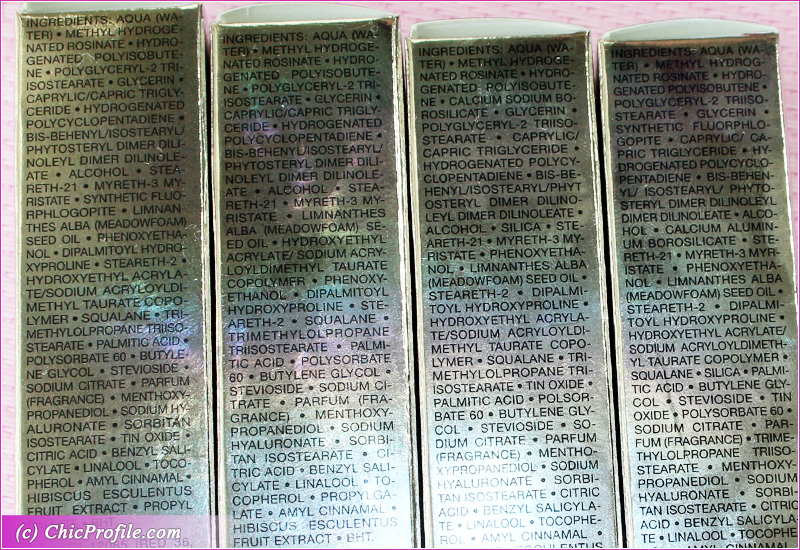 INGREDIENTS: AQUA (WA-
TER) • METHYL HYDROGE-
NATED ROSINATE • HYDRO-
GENATED POLYISOBUTE-
NE • POLYGLYCERYL-2 TRI-
ISOSTEARATE • GLYCERIN •
CAPRYLIC/CAPRIC TRIGLY-
CERIDE • HYDROGENATED
POLYCYCLOPENTADIENE •
BIS-BEHENYL/ISOSTEARYL/
PHYTOSTERYL DIMER DILI-
NOLEYL DIMER DILINOLE-
ATE • ALCOHOL • STEA-
RETH-21 • MYRETH-3 MY-
RISTATE • SYNTHETIC FLUO-
RPHLOGOPITE • LIMNAN-
THES ALBA (MEADOWFOAM)
SEED OIL • PHENOXYETHA-
NOL • DIPALMITOYL HYDRO-
XYPROLINE • STEARETH-2 •
HYDROXYETHYL ACRYLA-
TE/SODIUM ACRYLOYLDI-
METHYL TAURATE COPO-
LYMER • SQUALANE • TRI-
METHYLOLPROPANE TRIISO-
STEARATE • PALMITIC ACID •
POLYSORBATE 60 • BUTYLE-
NE GLYCOL • STEVIOSIDE •
SODIUM CITRATE • PARFUM
(FRAGRANCE) • MENTHOXY-
PROPANEDIOL • SODIUM HY-
ALURONATE • SORBITAN
ISOSTEARATE • TIN OXIDE •
CITRIC ACID • BENZYL SALI-
CYLATE • LINALOOL • TOCO-
PHEROL • AMYL CINNAMAL •
HIBISCUS ESCULENTUS
FRUIT EXTRACT • PROPYL
INGREDIENTS: AQUA (WA-
TER) • METHYL HYDROGE-
NATED ROSINATE • HYDRO-
GENATED POLYISOBUTE-
NE • POLYGLYCERYL-2 TRI-
ISOSTEARATE • GLYCERIN •
CAPRYLIC/CAPRIC TRIGLY-
CERIDE • HYDROGENATED
POLYCYCLOPENTADIENE •
BIS-BEHENYL/ISOSTEARYL/
PHYTOSTERYL DIMER DILI-
NOLEYL DIMER DILINOLE-
ATE • ALCOHOL • STEA-
RETH-21 • MYRETH-3 MY-
RISTATE • LIMNANTHES
ALBA (MEADOWFOAM) SE-
ED OIL • HYDROXYETHYL
ACRYLATE/ SODIUM ACRY-
LOYLDIMETHYL TAURATE
COPOLYMER • PHENOXY-
ETHANOL • DIPALMITOYL
HYDROXYPROLINE • STE-
ARETH-2 • SQUALANE •
TRIMETHYLOLPROPANE
TRIISOSTEARATE • PALMI-
TIC ACID • POLYSORBATE
60 • BUTYLENE GLYCOL •
STEVIOSIDE • SODIUM CI-
TRATE • PARFUM (FRA-
GRANCE) • MENTHOXY-
PROPANEDIOL • SODIUM
HYALURONATE • SORBI-
TAN ISOSTEARATE • CI-
TRIC ACID • BENZYL SALI-
CYLATE • LINALOOL • TO-
COPHEROL • PROPYLGA-
LATE • AMYL CINNAMAL •
HIBISCUS ESCULENTUS
FRUIT EXTRACT • BHT.
INGREDIENTS: AQUA (WA-
TER) • METHYL HYDROGE-
NATED ROSINATE • HYDRO-
GENATED POLYISOBUTE-
NE • CALCIUM SODIUM BO-
ROSILICATE • GLYCERIN •
POLYGLYCERYL-2 TRIISO-
STEARATE • CAPRYLIC/
CAPRIC TRIGLYCERIDE •
HYDROGENATED POLYCY-
CLOPENTADIENE • BIS-BE-
HENYL/ISOSTEARYL/PHYT
OSTERYL DIMER DILINO-
LEYL DIMER DILINOLEATE •
ALCOHOL • SILICA • STE-
ARETH-21 • MYRETH-3 MY-
RISTATE • PHENOXYETHA-
NOL • LIMNANTHES ALBA
(MEADOWFOAM) SEED OIL •
STEARETH-2 • DIPALMI-
TOYL HYDROXYPROLINE •
HYDROXYETHYL ACRYLA-
TE/SODIUM ACRYLOYLDI-
METHYL TAURATE COPO-
LYMER • SQUALANE • TRI-
METHYLOLPROPANE TRI-
ISOSTEARATE • TIN OXIDE •
PALMITIC ACID • POLSOR-
BATE 60 • BUTYLENE GLY-
COL • STEVIOSIDE • SO-
DIUM CITRATE • PARFUM
(FRAGRANCE) • MENTHO-
XYPROPANEDIOL • SODIUM
HYALURONATE • SORBI-
TAN ISOSTEARATE • CITRIC
ACID • BENZYL SALICYLA-
TE • LINALOOL • TOCOPHE-
ROL • AMYL CINNAMAL •
INGREDIENTS: AQUA (WA-
TER) • METHYL HYDROG-
NATED ROSINATE • HYDRO-
GENATED POLYISOBUTENE •
POLYGLYCERYL-2 TRIISO-
STEARATE • GLYCERIN •
SYNTHETIC FLUORPHLO-
GOPITE • CAPRYLIC/ CA-
PRIC TRIGLYCERIDE • HY-
DROGENATED POLYCYCLO-
PENTADIENE • BIS-BEHEN-
YL/ ISOSTEARYL/ PHYTO-
STERYL DIMER DILINOLEYL
DIMER DILINOLEATE • ALCO-
HOL • CALCIUM ALUMIN-
UM BOROSILICATE • STEA-
RETH-21 • MYRETH-3 MYR-
ISTATE • PHENOXYETHA-
NOL • LIMNANTHES ALBA
(MEADOWFOAM) SEED OIL •
STEARETH-2 • DIPALMI-
TOYL HYDROXYPROLINE •
HYDROXYETHYL ACRYLATE/
SODIUM ACRYLOYLDIMETH-
YL TAURATE COPOLYMER •
SQUALANE • SILICA • PALMI-
TIC ACID • BUTYLENE GLY-
COL • STEVIOSIDE • TIN
OXIDE • POLYSORBATE 60 •
SODIUM CITRATE • PAR-
FUM (FRAGRANCE) • TRIME-
THYLOLPROPANE TRIISO-
STEARATE • MENTHOXY-
PROPANEDIOL • SODIUM
HYALURONATE • SORBI-
TAN ISOSTEARATE • CITRIC
ACID • BENZYL SALICYLA-
TE • LINALOOL • TOCOPHE-
ROL • AMYL CINNAMAL
(c) ChicProfile.com